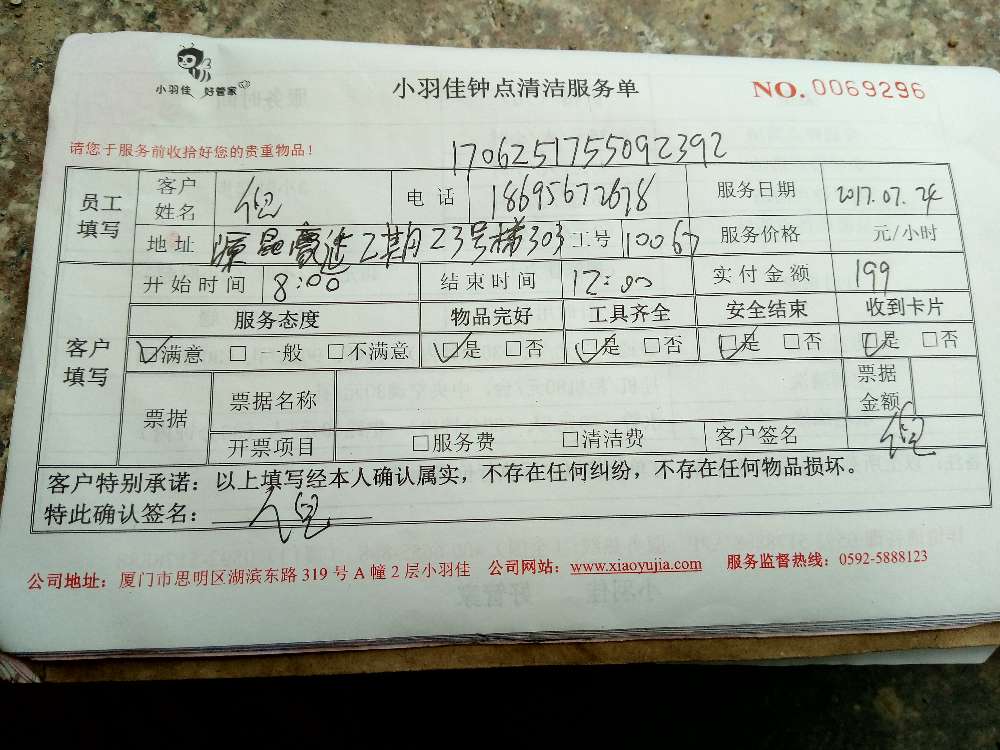 小羽佳 好管家
小羽佳钟点清洁服务单
NO. 0069296
请您于服务前收拾好您的贵重物品!
1706251755092392
员工填写 客户姓名 倪 电话 18695672678 服务日期 2017.07.24
地址 豪廷2期23号梯303 工号 10067 服务价格 元/小时
客户填写 开始时间 8:00 结束时间 12:00 实付金额 199
服务态度 物品完好 工具齐全 安全结束 收到卡片
☑满意 □一般 □不满意 ☑是 □否 ☑是 □否 ☑是 □否 ☑是 □否
票据 票据名称 票据金额
开票项目 □服务费 □清洁费 客户签名 倪
客户特别承诺:以上填写经本人确认属实,不存在任何纠纷,不存在任何物品损坏。
特此确认签名: 倪
公司地址:厦门市思明区湖滨东路 319 号 A 幢 2 层小羽佳 公司网站:www.xiaoyujia.com 服务监督热线:0592-5888123